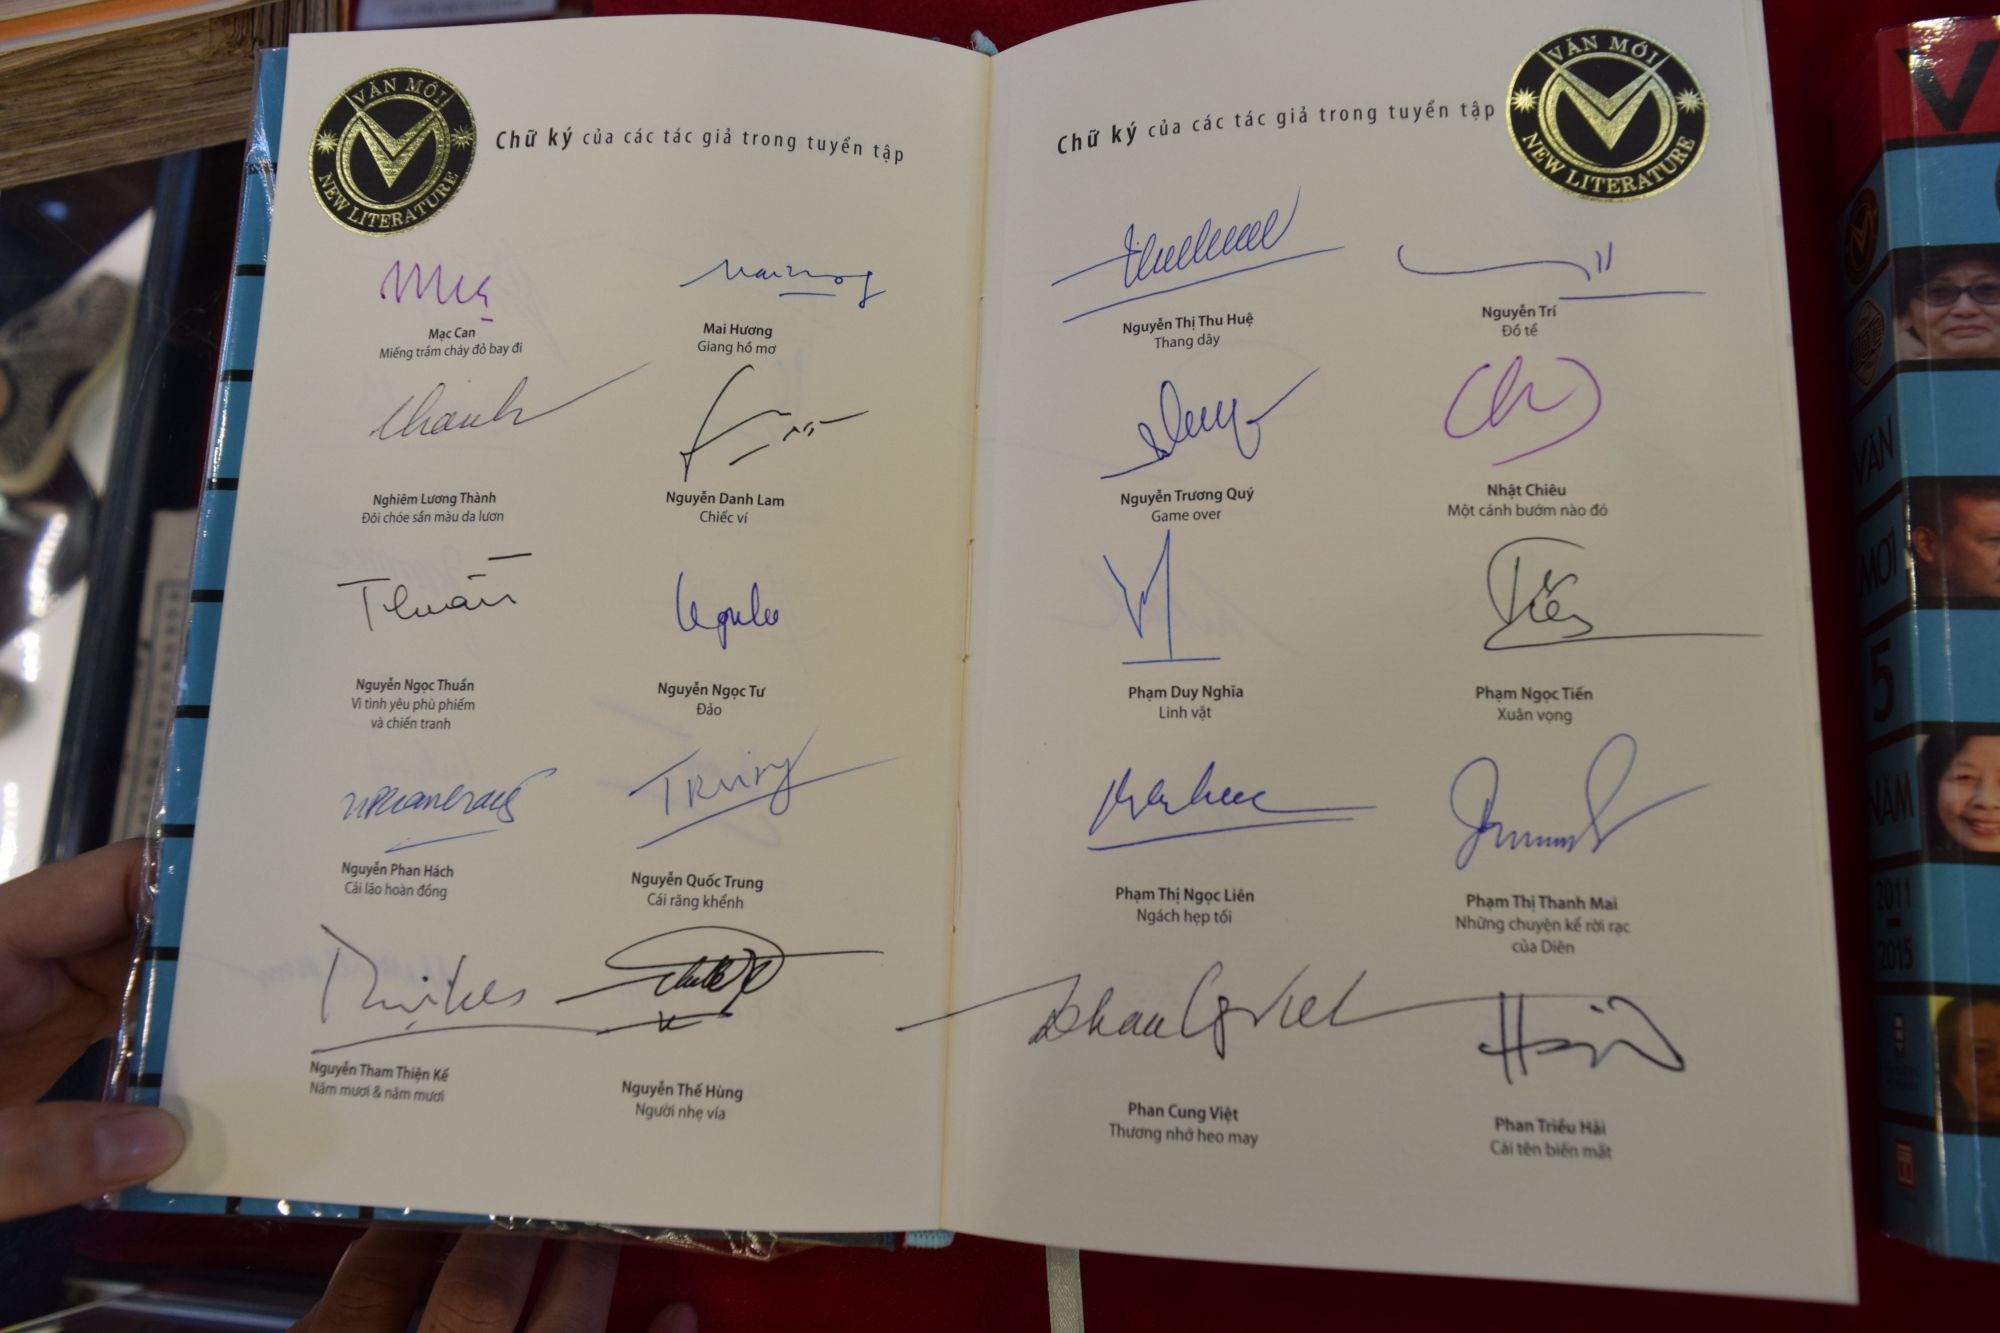 VĂN MỚI
NEW LITERATURE
Chữ ký của các tác giả trong tuyển tập
Mạc Can
Miếng trầm cháy đỏ bay đi
Mai Hương
Giang hồ mơ
Thành
Nghiêm Lương Thành
Đôi chóe sần màu da lươn
Nguyễn Danh Lam
Chiếc ví
Thuần
Nguyễn Ngọc Thuần
Vì tình yêu phù phiếm
và chiến tranh
Nguyễn Ngọc Tư
Đảo
Nguyễn Phan Hách
Cải lão hoàn đồng
Trung
Nguyễn Quốc Trung
Cái răng khểnh
Nguyễn Tham Thiện Kế
Năm mươi & năm mươi
Nguyễn Thế Hùng
Người nhẹ vía
Chữ ký của các tác giả trong tuyển tập
VĂN MỚI
NEW LITERATURE
Nguyễn Thị Thu Huệ
Thang dây
Nguyễn Trí
Đồ tể
Nguyễn Trương Quý
Game over
Nhật Chiêu
Một cánh bướm nào đó
Phạm Duy Nghĩa
Linh vật
Tiến
Phạm Ngọc Tiến
Xuân vọng
Phạm Thị Ngọc Liên
Ngách hẹp tối
Phạm Thị Thanh Mai
Những chuyện kể rời rạc
của Diên
Phan Cung Việt
Thương nhớ heo may
Phan Triều Hải
Cái tên biến mất
VĂN
MỚI
5
NĂM
2011
2015